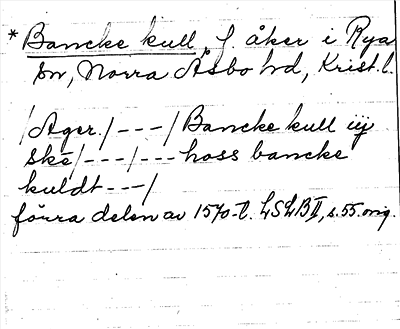 * Bancke kull, f. åker i Rya
sn, Norra Åsbo hd, Krist. l.
/Ager./---/Bancke kull iij
ske/---/---hoss bancke
kuldt---/
förra delen av 1570-t. LSLB II, s. 55. orig.